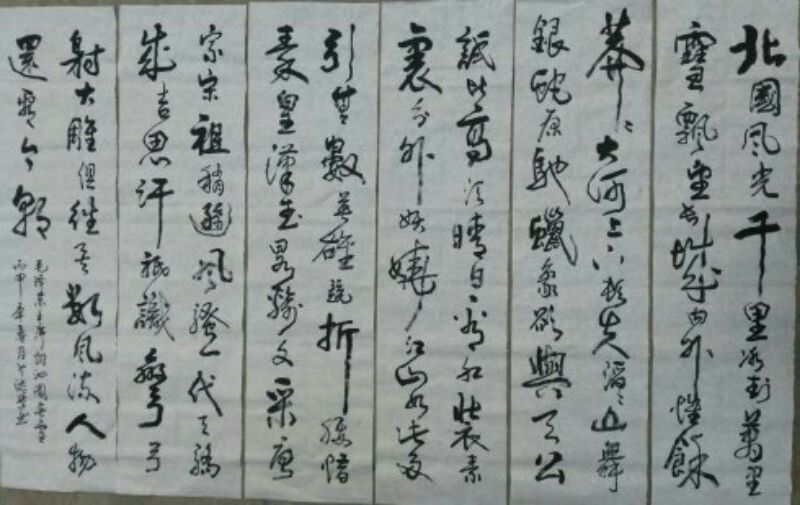 北國风光千里冰封萬里
雪飄望長城内外惟餘
莽〻大河上下頓失滔〻山舞
銀蛇原馳蠟象欲與天公
試比高須晴日看红裝素
裹分外妖嬈江山如此多
引無數英雄競折腰惜
秦皇漢武略輸文采唐
宗宋祖稍遜風騷一代天驕
成吉思汗祇識彎弓
射大雕俱往矣數風流人物
還看今朝
毛泽东主席詞沁園春雪
丙申年春月